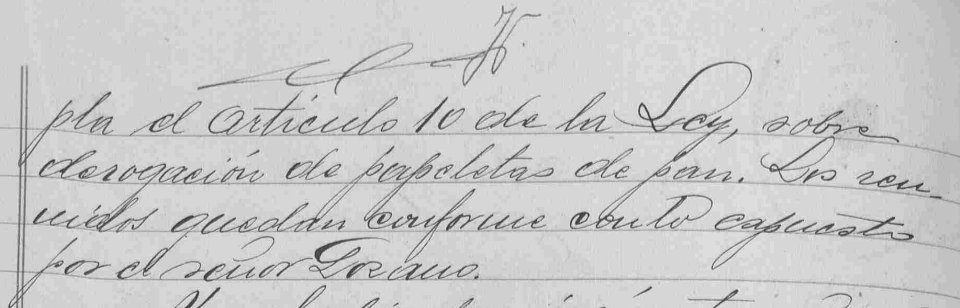 pla el Artículo 10 de la Ley, sobre
derogación de papeletas de pan. Los reu-
nidos quedan conforme con lo expuesto
por el señor Lozano.